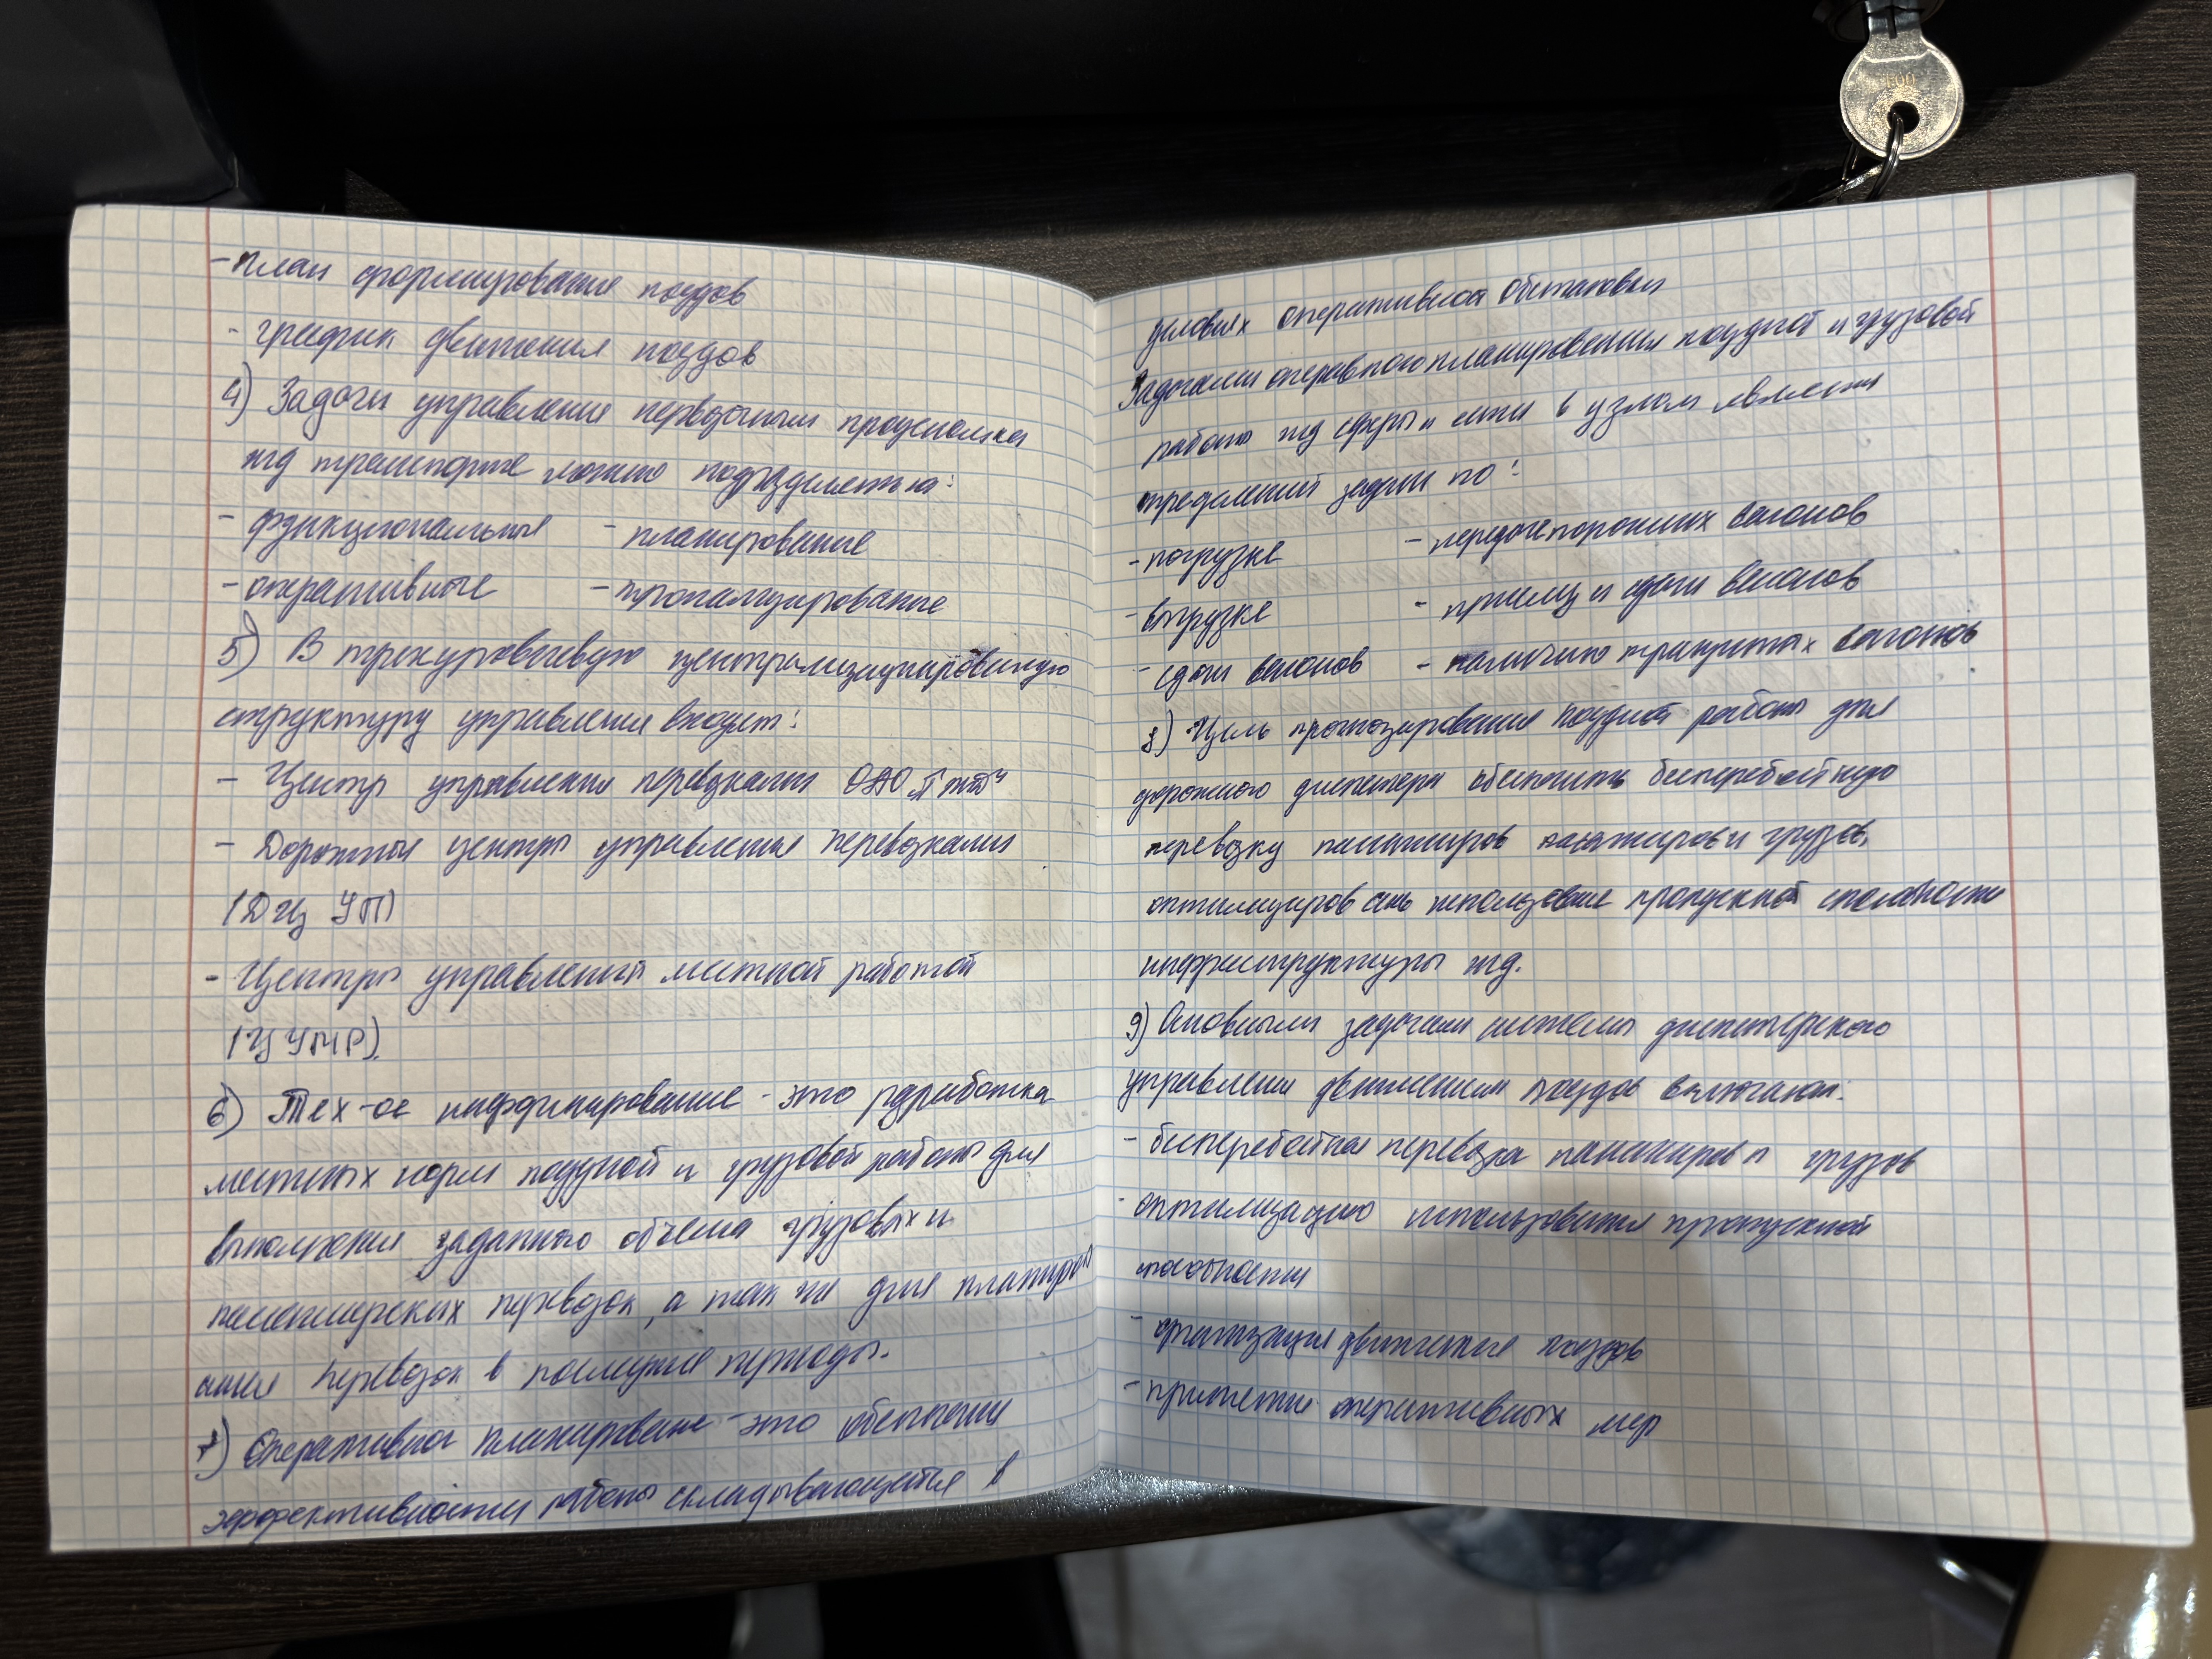 - план формирования поездов
- график движения поездов
4) Задачи управления перевозочным процессом на
жд транспорте можно подразделить на:
- функциональные - планирование
- оперативные
5) В трехуровневую централизационированную
структуру управления входит:
- Центр управления перевозками ОАО „РЖД"
- Дорожные центры управления перевозками
(ДЦ УП)
- Центры управлений местной работой
(ЦУМР).
6) Тех-ое - это разработка
местных норм поездной и грузовой работы для
выполнения заданного объема грузовых и
пассажирских перевозок, а так же для планиро
ания перевозок в последущие периоды.
7) Оперативное планирование - это обеспечения
эффективности работы складывающейся в
условиях оперативной обстановки
Задачами оперативного планирования поездной и грузовой
работы жд сферы и сети в узлом является
определений задачи по:
- погрузке - передаче порожних вагонов
- выгрузке - приему и сдачи вагонов
- сдачи вагонов - наличию транзитных вагонов
8) Цель прогнозирования поездной работы для
дорожного диспетчера обеспечить бесперебойную
перевозку пассажиров пассажиров и грузов,
оптимизиров использование пропускной способности
инфраструктуры жд.
9) Основными задачами системы диспетчерского
управления движением поездов включают:
- бесперебойная перевозка пассажиров и грузов
- оптимизацию использования пропускной
способности
- организация движения поездов
- принятие оперативных мер